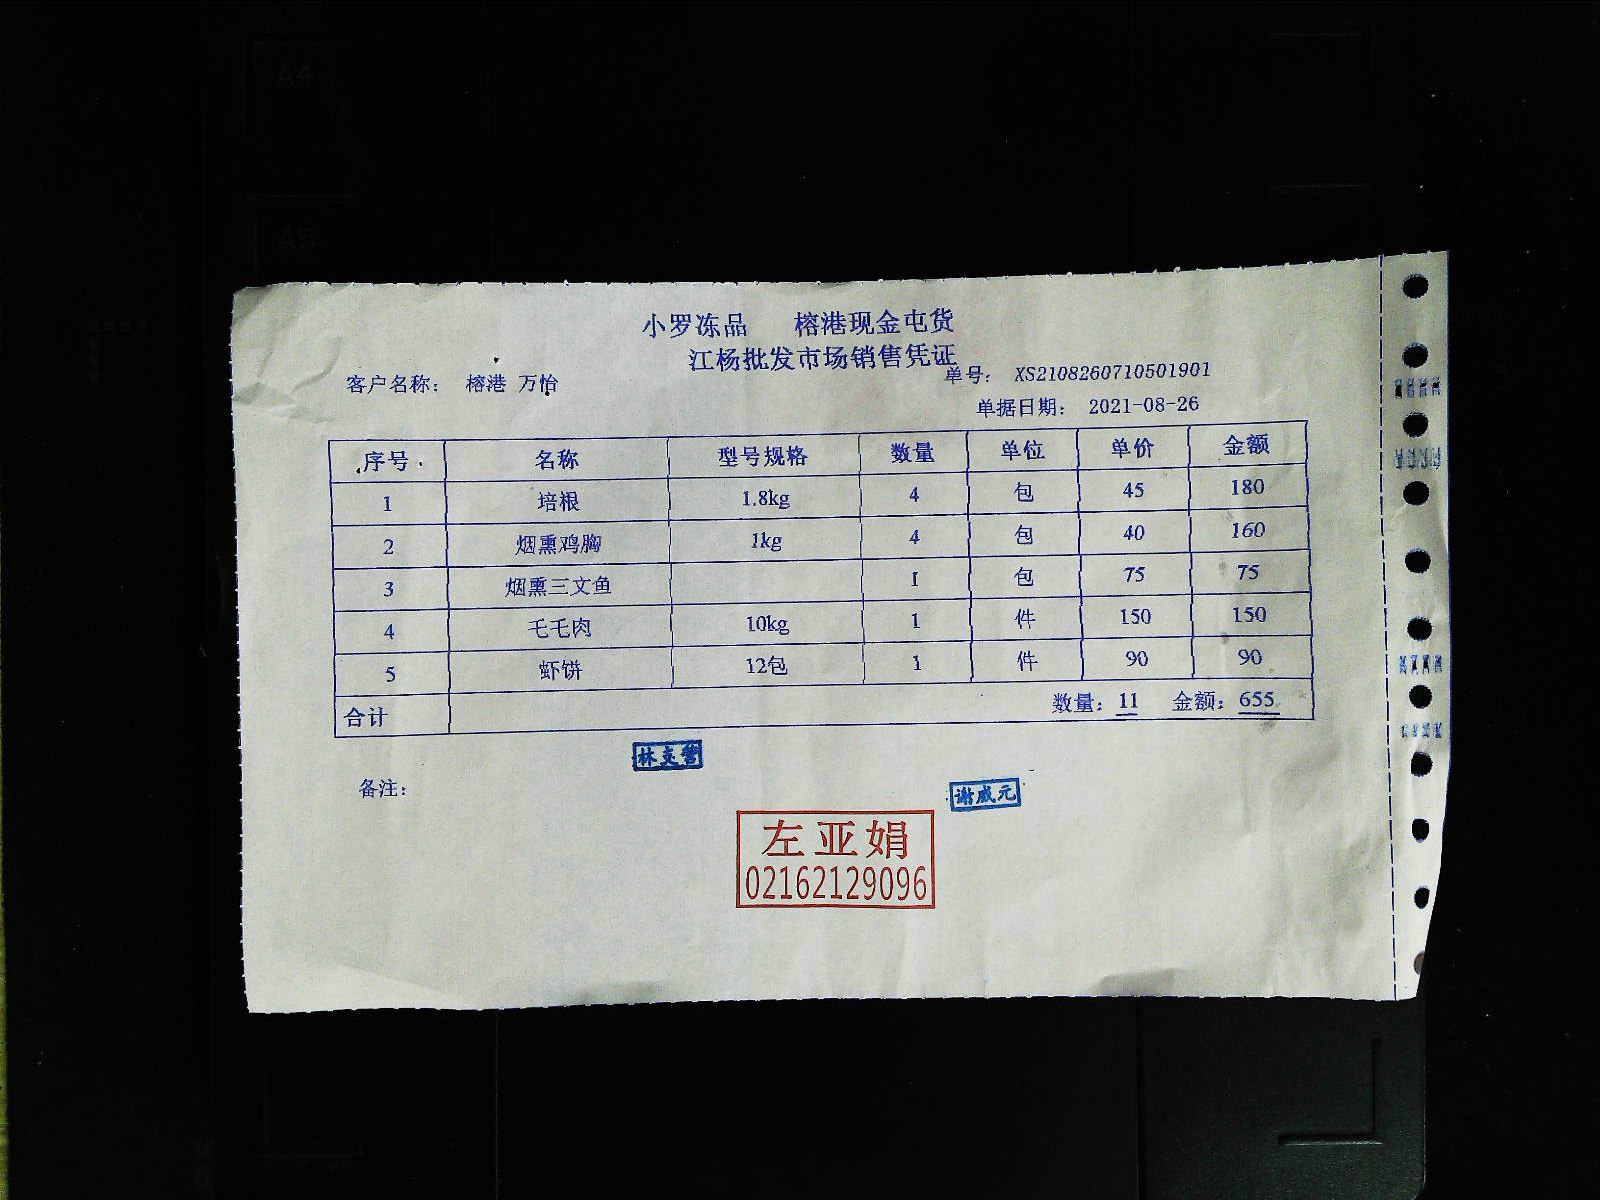 小罗冻品 榕港现金屯货
江杨批发市场销售凭证
客户名称： 榕港 万怡 单号： XS2108260710501901
单据日期： 2021-08-26
序号 名称 型号规格 数量 单位 单价 金额
1 培根 1.8kg 4 包 45 180
2 烟熏鸡胸 1kg 4 包 40 160
3 烟熏三文鱼 1 包 75 75
4 毛毛肉 10kg 1 件 150 150
5 虾饼 12包 1 件 90 90
合计 数量：11 金额：655
备注：
谢威元
左亚娟
02162129096
A4
A5